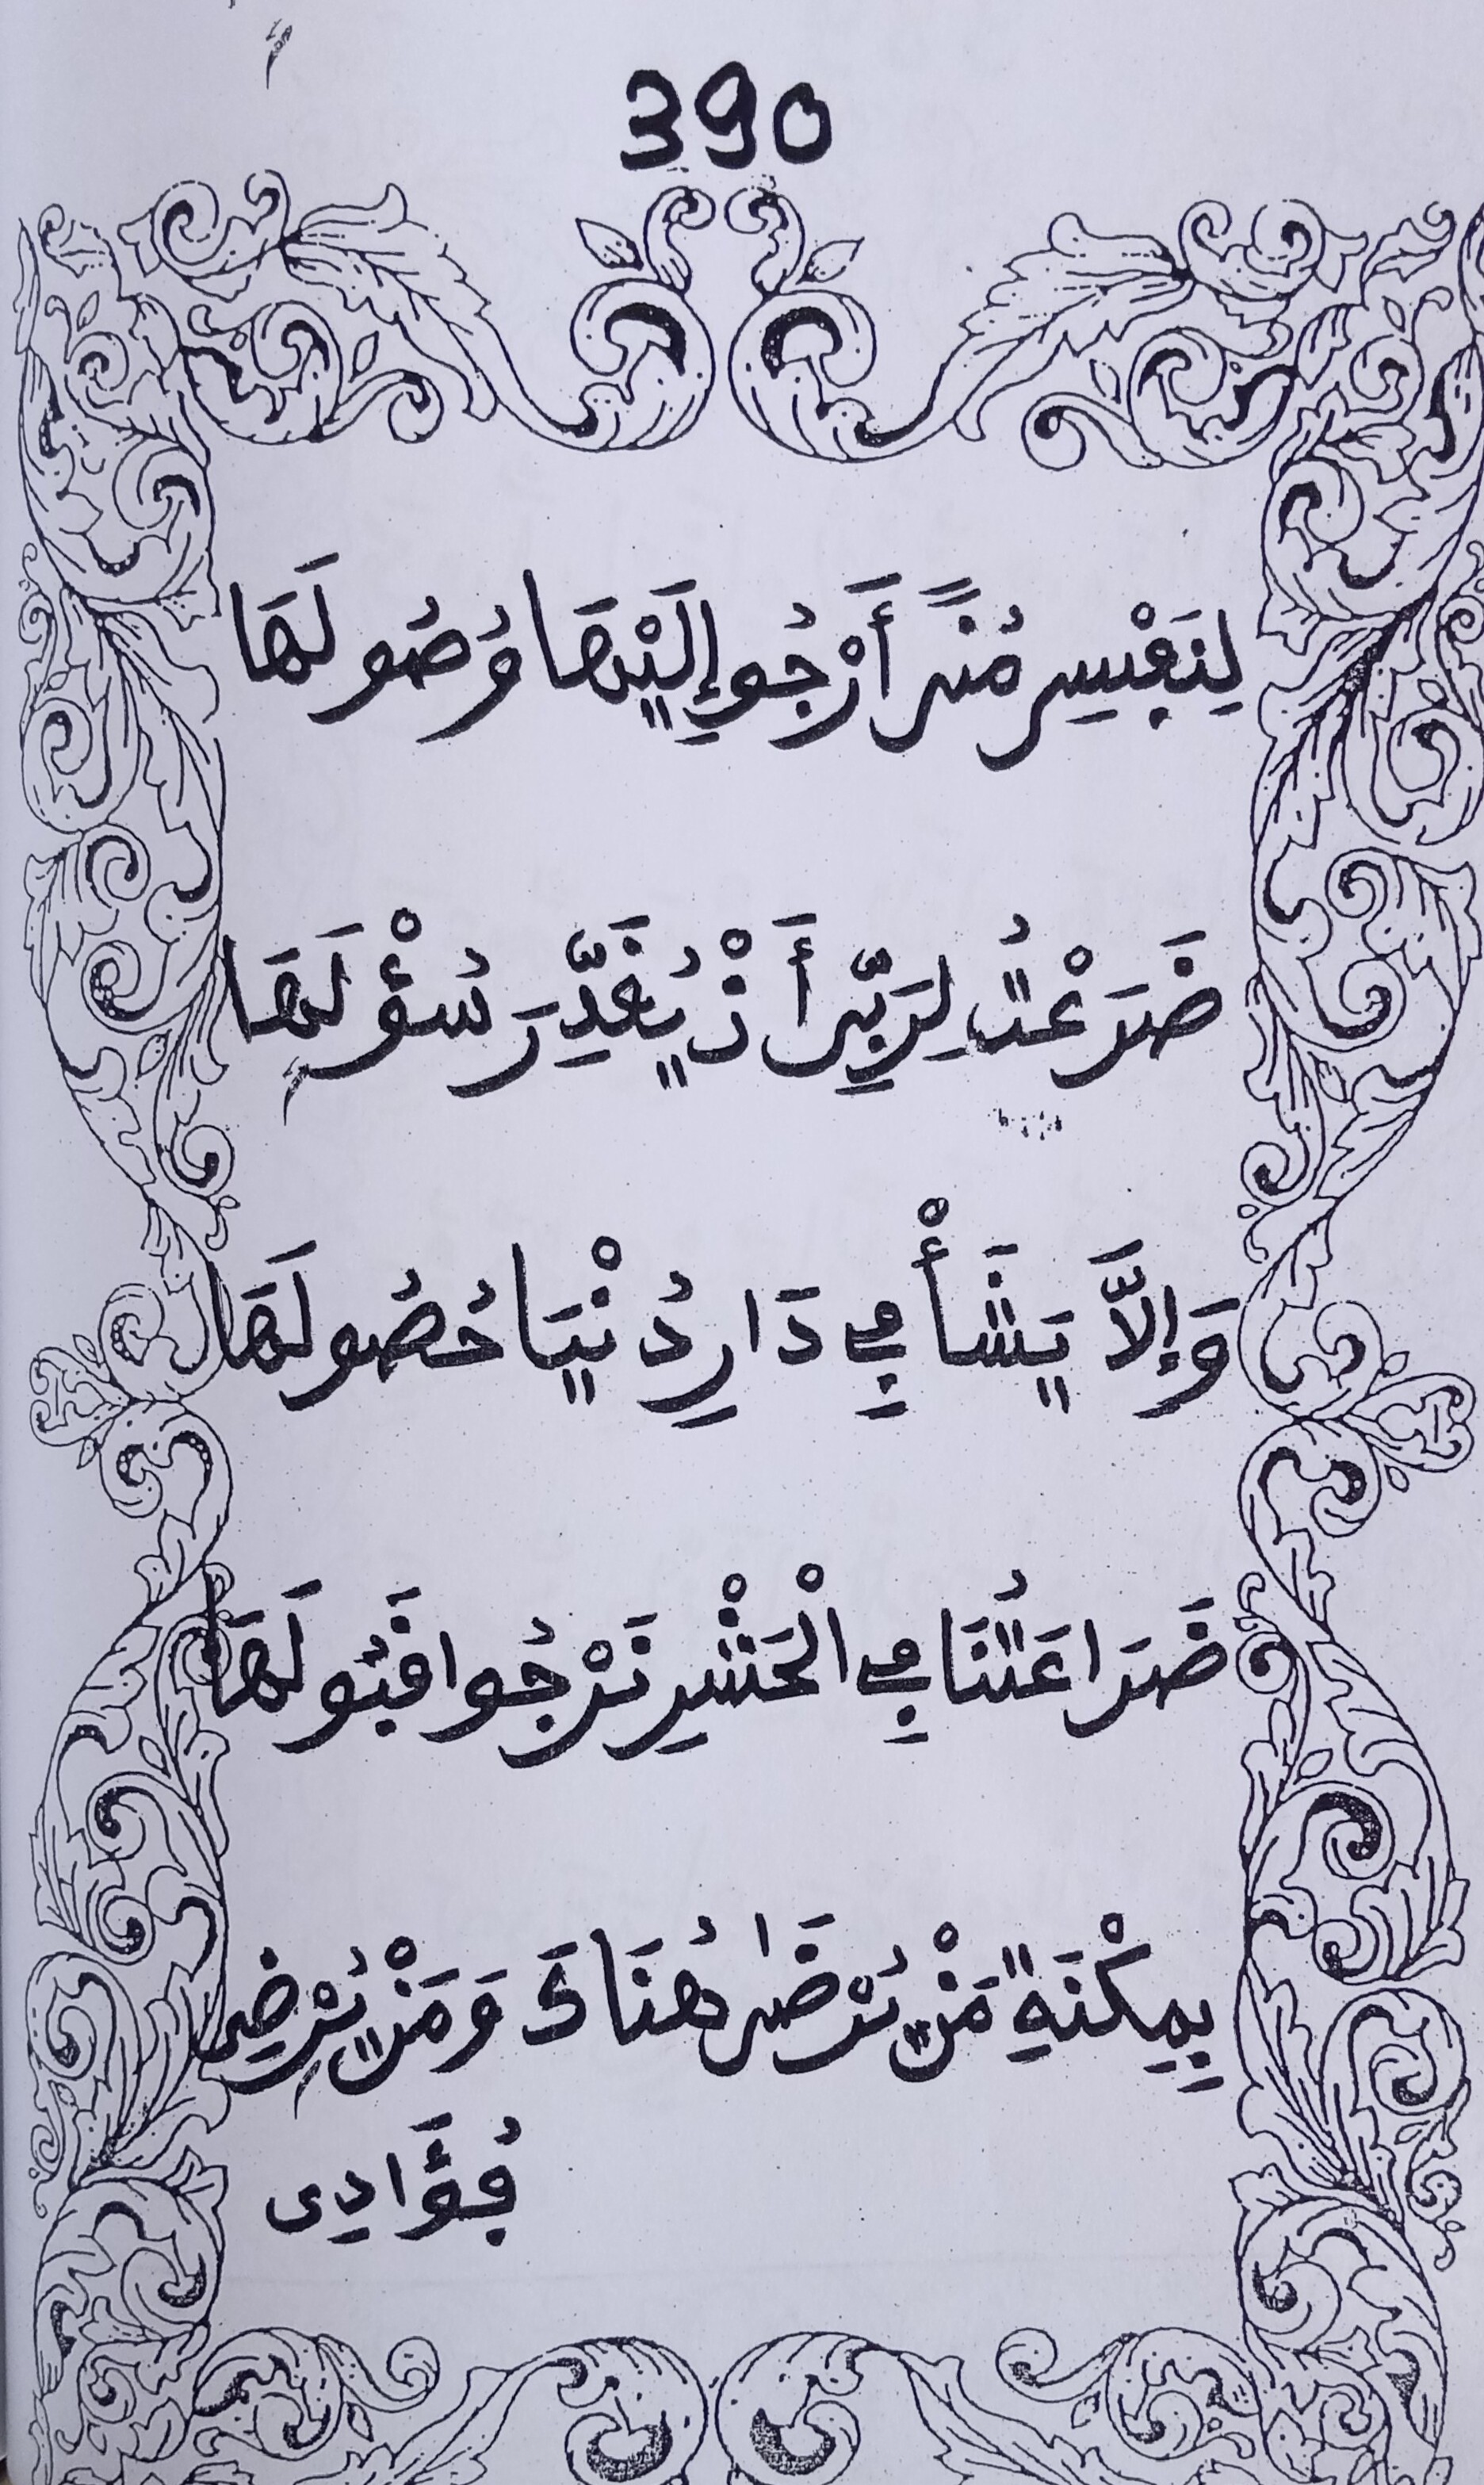 390
لِنَفْسِي مُنًى أَرْجُو إِلَيْهَا وُصُولَهَا
ضَرَعْتُ لِرَبِّي أَنْ يُقَدِّرَ سُؤْلَهَا
وَإِلَّا يَشَأْ فِي دَارِ دُنْيَا حُصُولَهَا
ضَرَاعَتُنَا فِي الْحَشْرِ نَرْجُوا قَبُولَهَا
بِمِكْنَةِ مَنْ تَرْضَى هُنَاكَ وَمَنْ يُرْضِي
فُؤَادِي